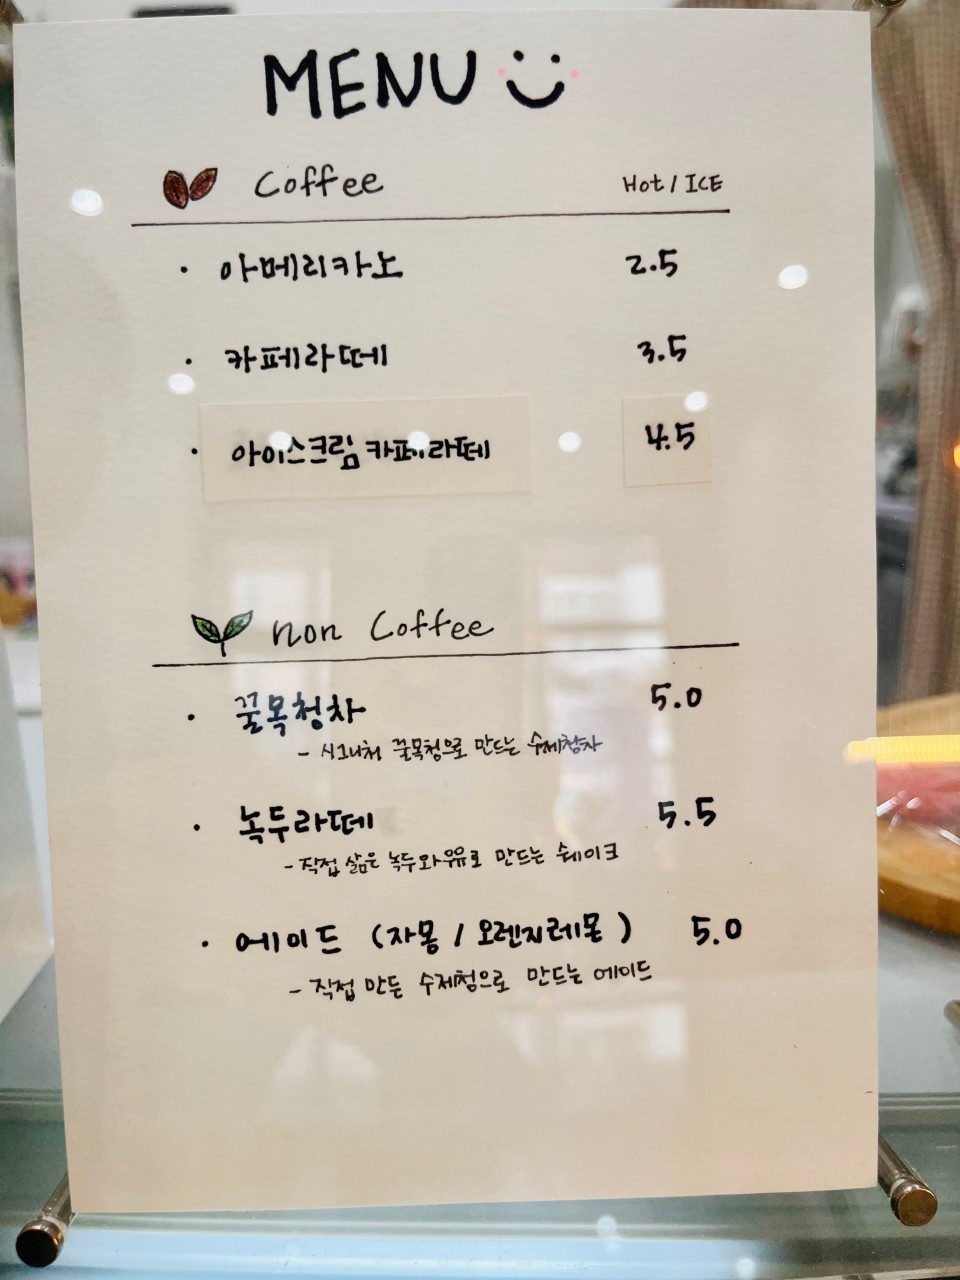 MENU
Coffee Hot / ICE
· 아메리카노 2.5
· 카페라떼 3.5
· 아이스크림 카페라떼 4.5
non Coffee
· 꿀목청차 5.0
- 시그니처 꿀목청으로 만드는 수제청차
· 녹두라떼 5.5
- 직접 삶은 녹두와 우유로 만드는 쉐이크
· 에이드 (자몽 / 오렌지레몬) 5.0
- 직접 만든 수제청으로 만드는 에이드